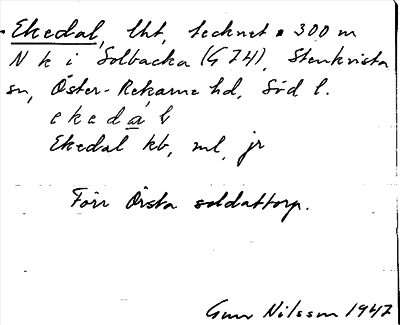 Ekedal, lht, tecknet 300 m
N k i Solbacka (G 74), Stenkvista
sn, Öster-Rekarne hd, Söd l.
ekedal
Ekedal kb, ml, jr
Förr Örsta soldattorp.
Gun Nilsson 1947